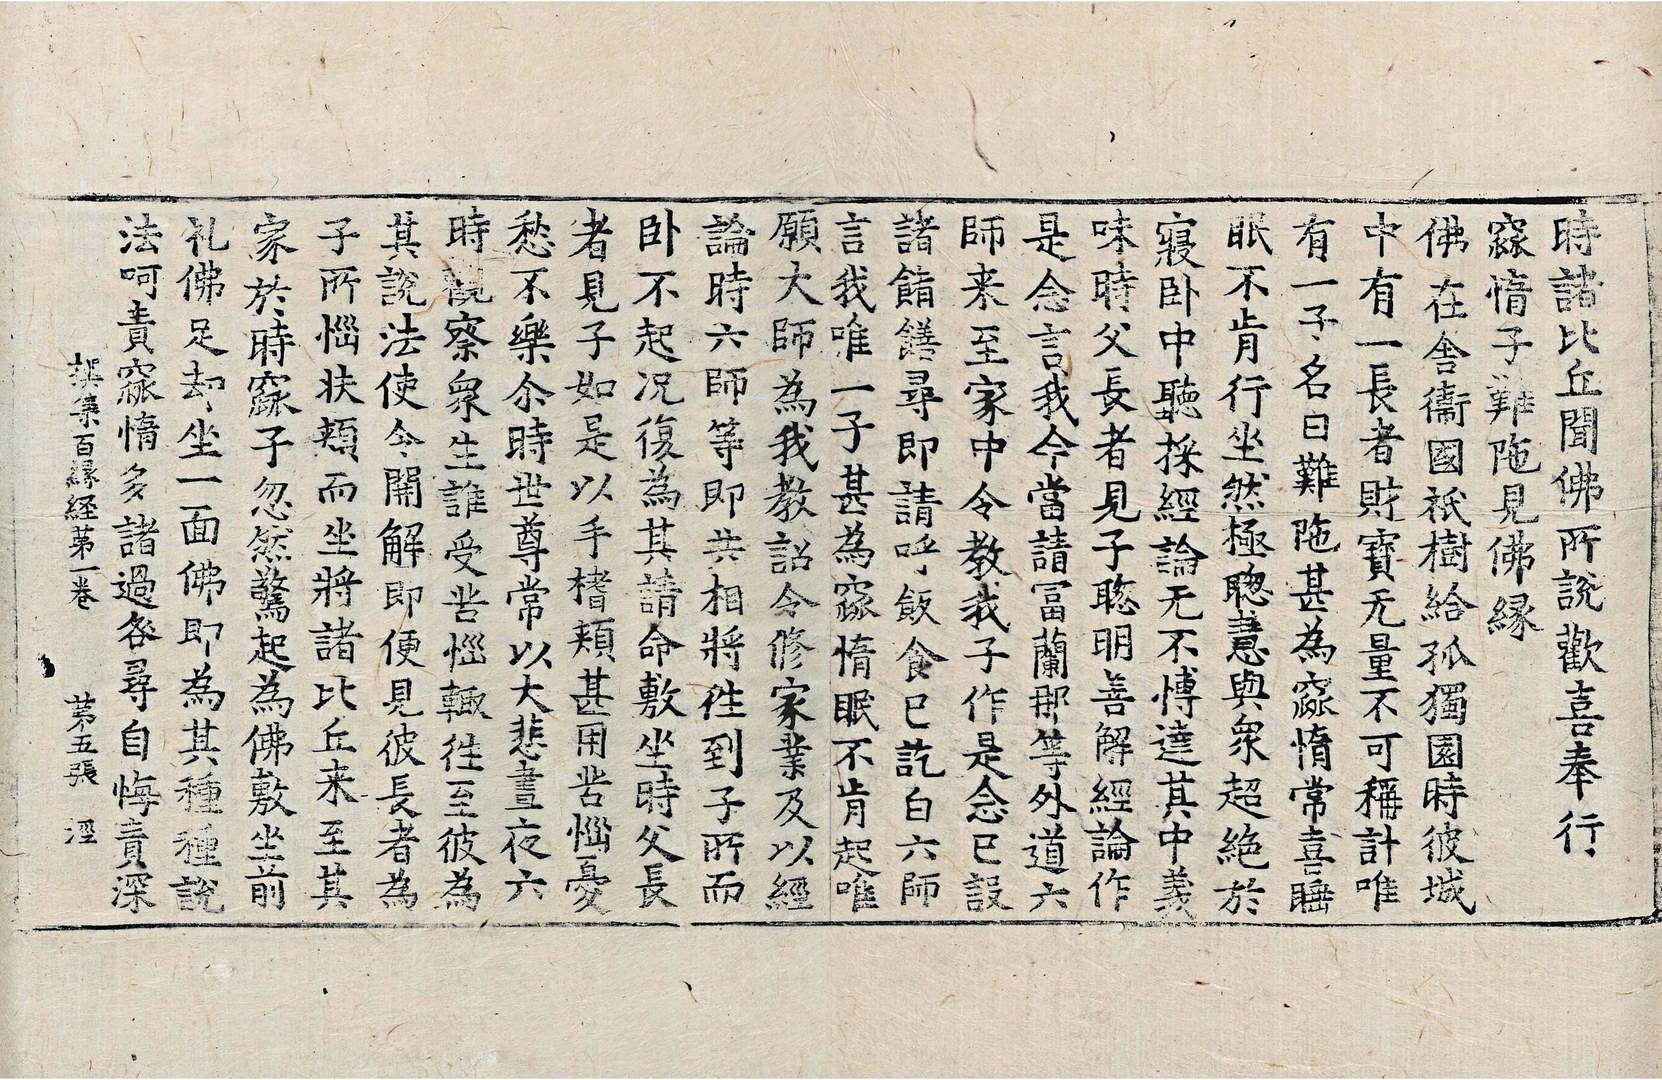 時諸比丘聞佛所說歡喜奉行
窳惰子難陁見佛縁
佛在舍衞國祇樹給孤獨園時彼城
中有一長者財寶无量不可稱計唯
有一子名曰難陁甚為窳惰常喜睡
眠不肯行坐然極聦慧與衆超絶於
寢卧中聽採經論无不博達其中義
味時父長者見子聦明善解經論作
是念言我今當請富蘭那等外道六
師来至家中令教我子作是念已設
諸餚饍尋即請呼飯食已訖白六師
言我唯一子甚為窳惰眠不肯起唯
願大師為我教詔令修家業及以經
論時六師等即共相將徃到子所而
卧不起況復為其請命敷坐時父長
者見子如是以手榰頬甚用苦惱憂
愁不樂尒時世尊常以大悲晝夜六
時觀察衆生誰受苦惱輙徃至彼為
其說法使令開解即便見彼長者為
子所惱扶頬而坐將諸比丘来至其
家於時窳子忽然驚起為佛敷坐前
礼佛足却坐一面佛即為其種種說
法呵責窳惰多諸過咎尋自悔責深
撰集百縁経苐一卷　苐五張　涇